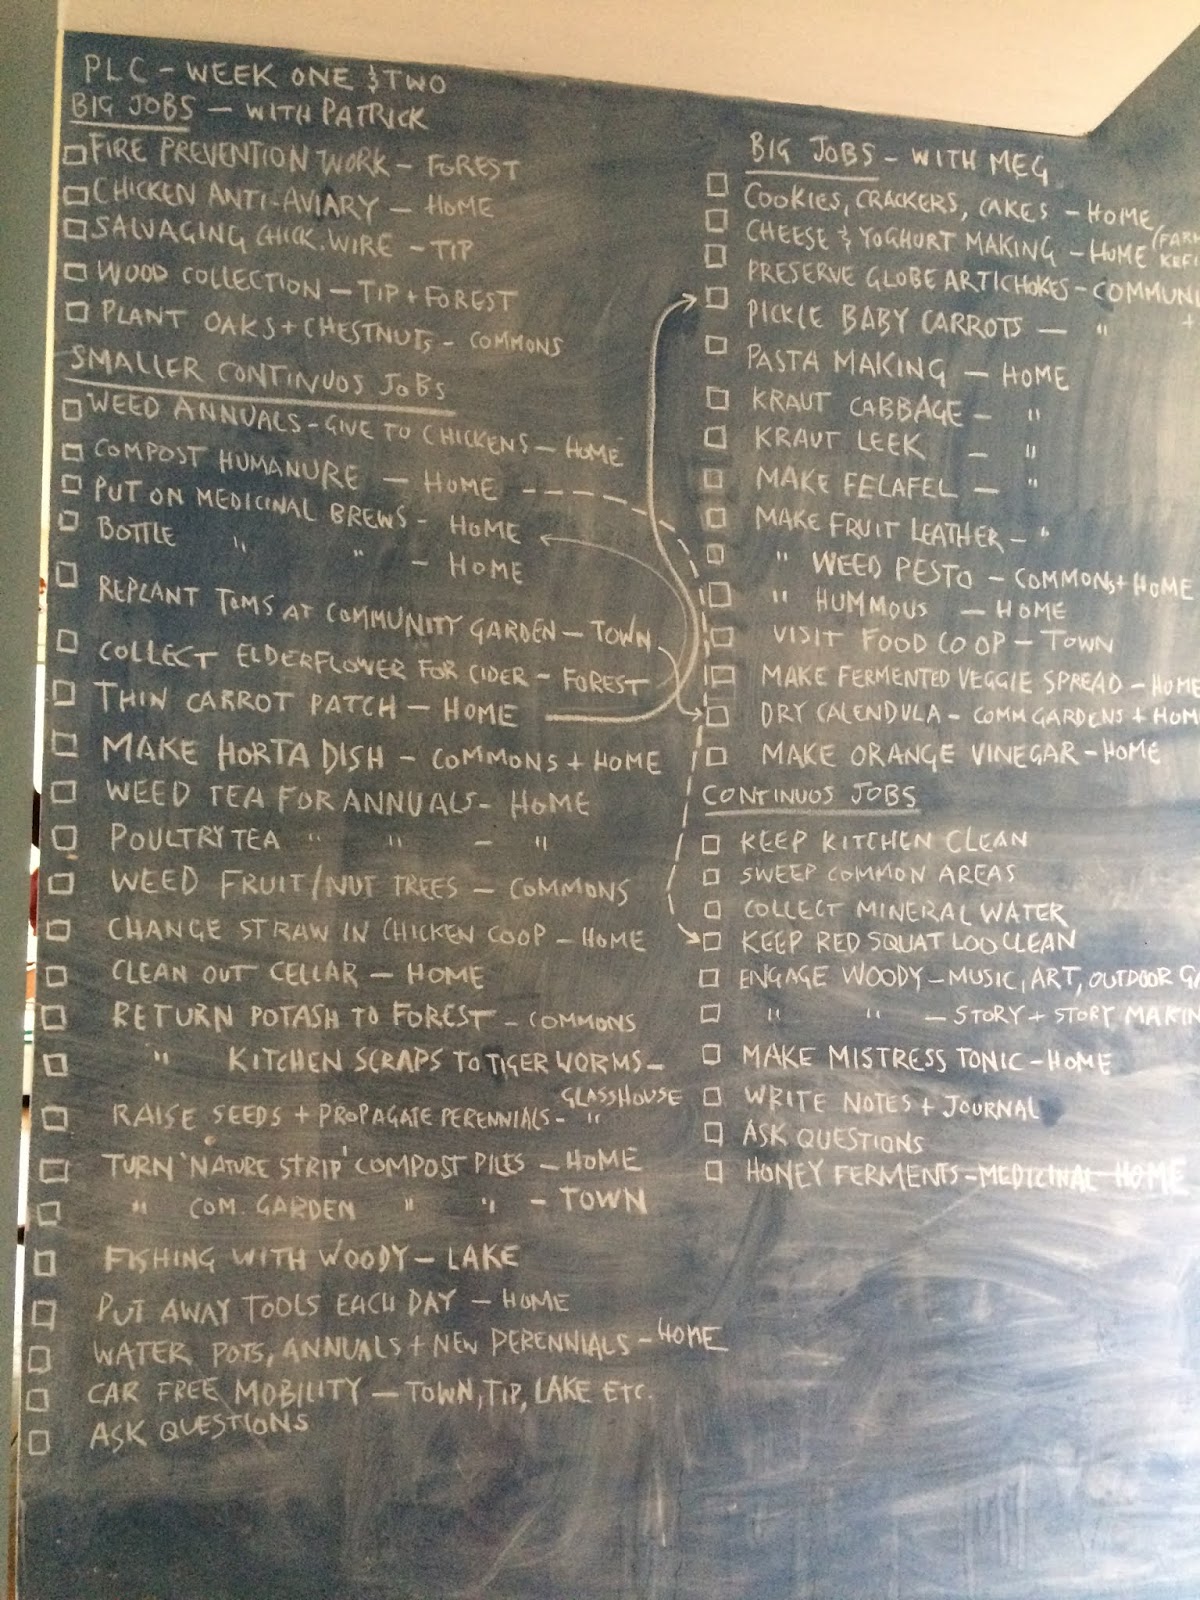 PLC - WEEK ONE & TWO
BIG JOBS - WITH PATRICK
FIRE PREVENTION WORK - FOREST
CHICKEN ANTI-AVIARY - HOME
SALVAGING CHICK. WIRE - TIP
WOOD COLLECTION - TIP + FOREST
PLANT OAKS + CHESTNUTS - COMMONS
SMALLER CONTINUOS JOBS
WEED ANNUALS - GIVE TO CHICKENS - HOME
COMPOST HUMANURE - HOME
PUT ON MEDICINAL BREWS - HOME
BOTTLE " " - HOME
REPLANT TOMS AT COMMUNITY GARDEN - TOWN
COLLECT ELDERFLOWER FOR CIDER - FOREST
THIN CARROT PATCH - HOME
MAKE HORTA DISH - COMMONS + HOME
WEED TEA FOR ANNUALS - HOME
POULTRY TEA " " - "
WEED FRUIT/NUT TREES - COMMONS
CHANGE STRAW IN CHICKEN COOP - HOME
CLEAN OUT CELLAR - HOME
RETURN POTASH TO FOREST - COMMONS
" KITCHEN SCRAPS TO TIGER WORMS -
GLASSHOUSE
RAISE SEEDS + PROPAGATE PERENNIALS - "
TURN 'NATURE STRIP' COMPOST PILES - HOME
" COM. GARDEN " " - TOWN
FISHING WITH WOODY - LAKE
PUT AWAY TOOLS EACH DAY - HOME
WATER POTS, ANNUALS + NEW PERENNIALS - HOME
CAR FREE MOBILITY - TOWN, TIP, LAKE ETC.
ASK QUESTIONS
BIG JOBS - WITH MEG
COOKIES, CRACKERS, CAKES - HOME
CHEESE & YOGHURT MAKING - HOME
PRESERVE GLOBE ARTICHOKES - COMMUN
+
PICKLE BABY CARROTS - "
PASTA MAKING - HOME
KRAUT CABBAGE - "
KRAUT LEEK - "
MAKE FELAFEL - "
MAKE FRUIT LEATHER - "
" WEED PESTO - COMMONS + HOME
" HUMMOUS - HOME
VISIT FOOD CO OP - TOWN
MAKE FERMENTED VEGGIE SPREAD - HOME
DRY CALENDULA - COMM GARDENS + HOM
MAKE ORANGE VINEGAR - HOME
CONTINUOS JOBS
KEEP KITCHEN CLEAN
SWEEP COMMON AREAS
COLLECT MINERAL WATER
KEEP RED SQUAT LOO CLEAN
ENGAGE WOODY - MUSIC, ART, OUTDOOR GA
" " - STORY + STORY MAKIN
MAKE MISTRESS TONIC - HOME
WRITE NOTES + JOURNAL
ASK QUESTIONS
HONEY FERMENTS - MEDICINAL HOME